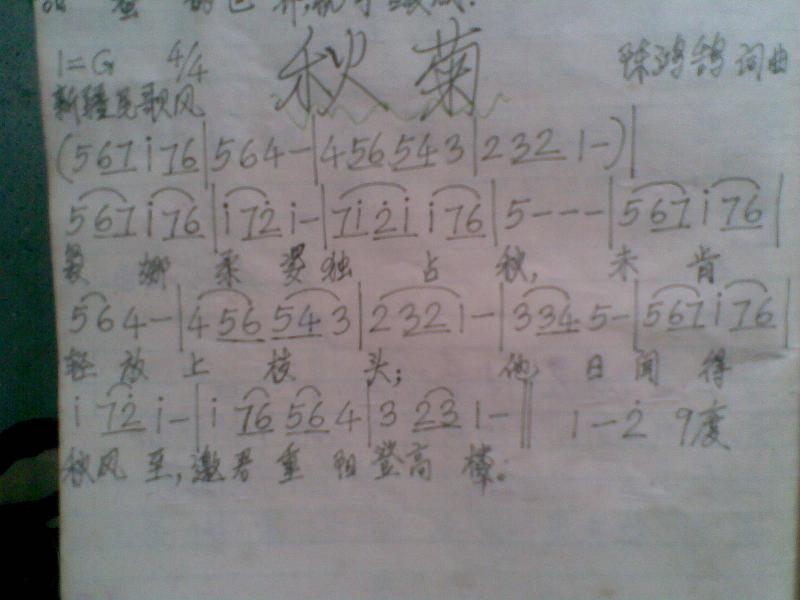 1=G 4/4 秋菊 陈鸿鸽 词曲
新疆民歌风
(567i76|564-|456543|23221-)|
567i76|i72i-|7i2ii76|5---|567i76|
袅娜柔姿独占秋,未肯
564-|456543|2321-|3345-|567i76|
轻放上枝头;他日闻得
i72i-|i76564|3231-‖ 1-2 9度
秋风至,邀君重阳登高楼。